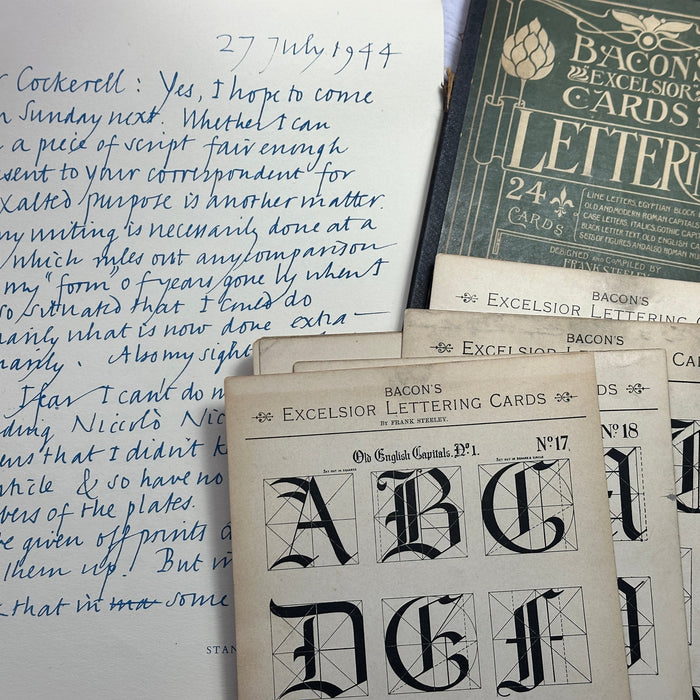 27 July 1944
Cockerell : Yes, I hope to come
Sunday next. Whether I can
a piece of script fair enough
sent to your correspondent for
xalted purpose is another matter.
my writing is necessarily done at a
which rules out any comparison
my "form" of years gone by when I
so situated that I could do
narily what is now done extra-
narily. Also my sight
I fear I can't do
ding Niccolò Nic
ens that I didn't k
nticle & so have no
bers of the plates.
e given off prints
them up! But
that in some
STAN
BACON'S
EXCELSIOR
CARDS
LETTERIN
24
CARDS
LINE LETTERS, EGYPTIAN BLOC
OLD AND MODERN ROMAN CAPITALS
CASE LETTERS, ITALICS, GOTHIC CAPIT
BLACK LETTER TEXT, OLD ENGLISH
SETS OF FIGURES AND ALSO ROMAN NUM
DESIGNED AND COMPILED BY
FRANK STEELEY
BACON'S
EXCELSIOR LETTERING C
BACON'S
EXCELSIOR LETTERING CA
DS
Nº 18
BACON'S
EXCELSIOR LETTERING CARDS
BY FRANK STEELEY.
Old English Capitals. Nº 1.
Nº 17.
SET OUT IN SQUARES
SET OUT IN SQUARE & CIRCLE
A B C
D E F